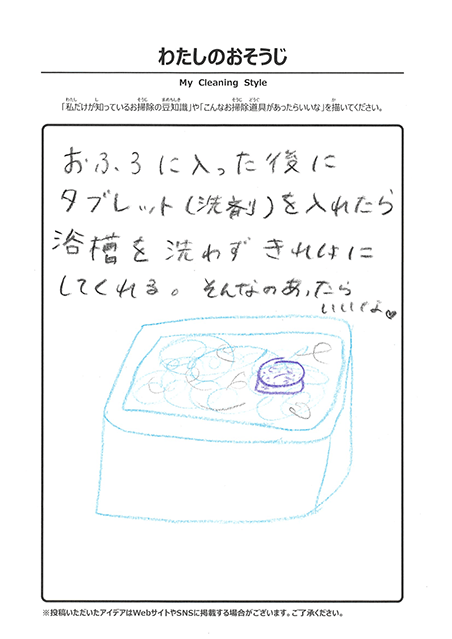 わたしのおそうじ
My Cleaning Style
「私だけが知っているお掃除の豆知識」や「こんなお掃除道具があったらいいな」を描いてください。
おふろに入った後に
タブレット(洗剤)を入れたら
浴槽を洗わず きれいに
してくれる。そんなのあったら
いいな♥
※投稿いただいたアイデアはWebサイトやSNSに掲載する場合がございます。ご了承ください。